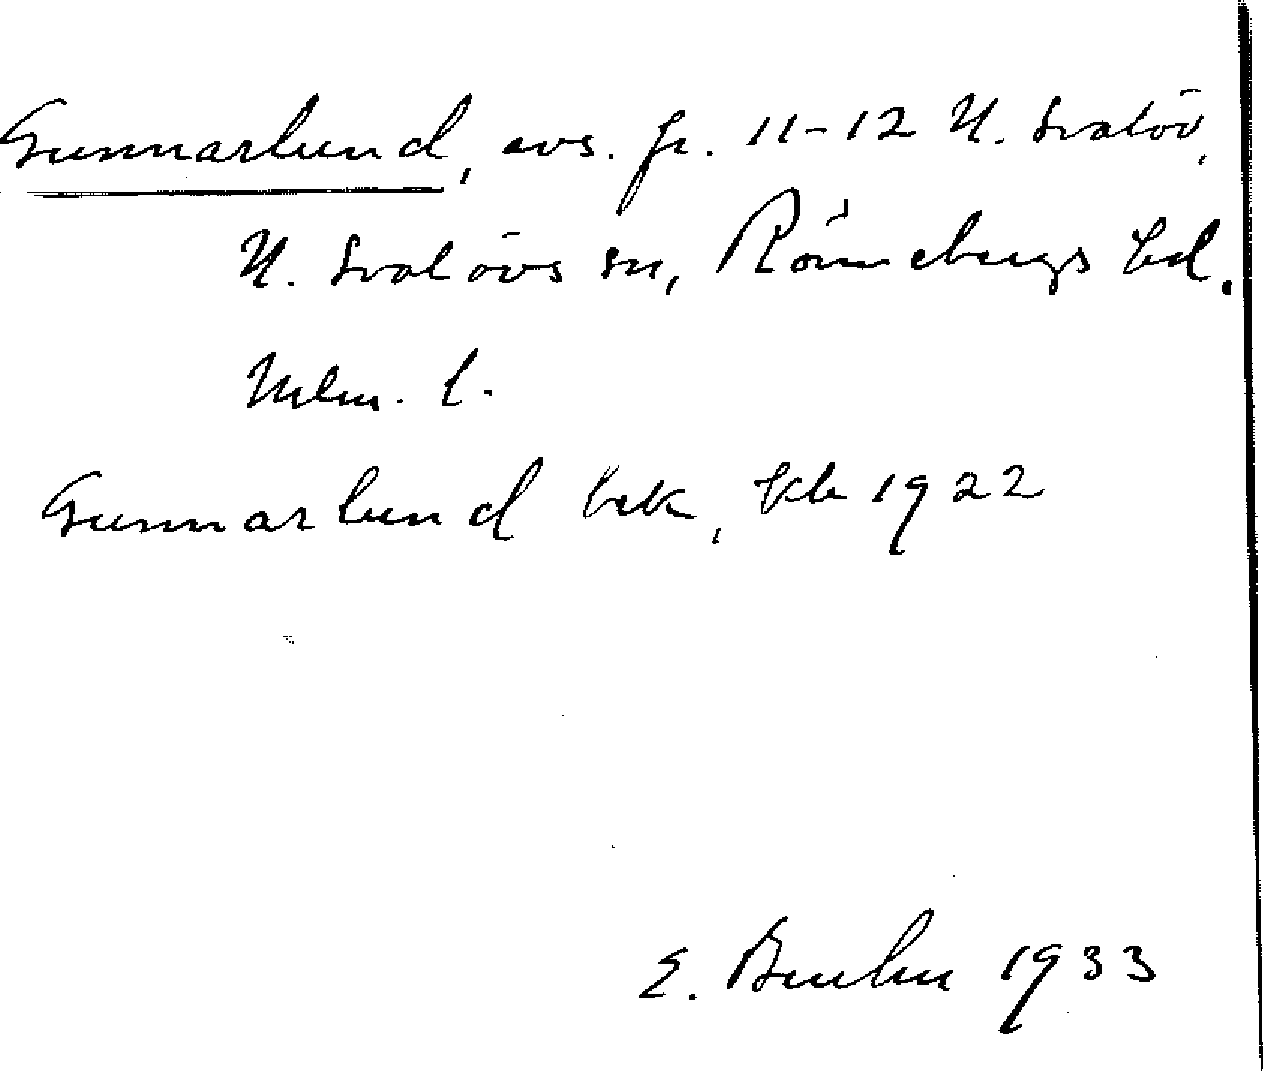 Gunnarlund, avs. fr. 11-12 N. Svalöv,
N. Svalövs sn, Rönnebergs hd.
Mlm. l.
Gunnarlund kbk, 1922
E. 1933